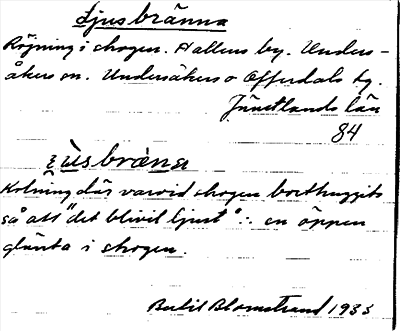 Ljusbränna
Röjning i skogen. Hallens by. Unders-
åkers sn. Undersåkers o Offerdals tg.
Jämtlands län
84
ùsbränna
Kolning där varvid skogen borthuggits
så att "det blivit ljust" ∴ en öppen
glänta i skogen.
Bertil Blomstrand 1935